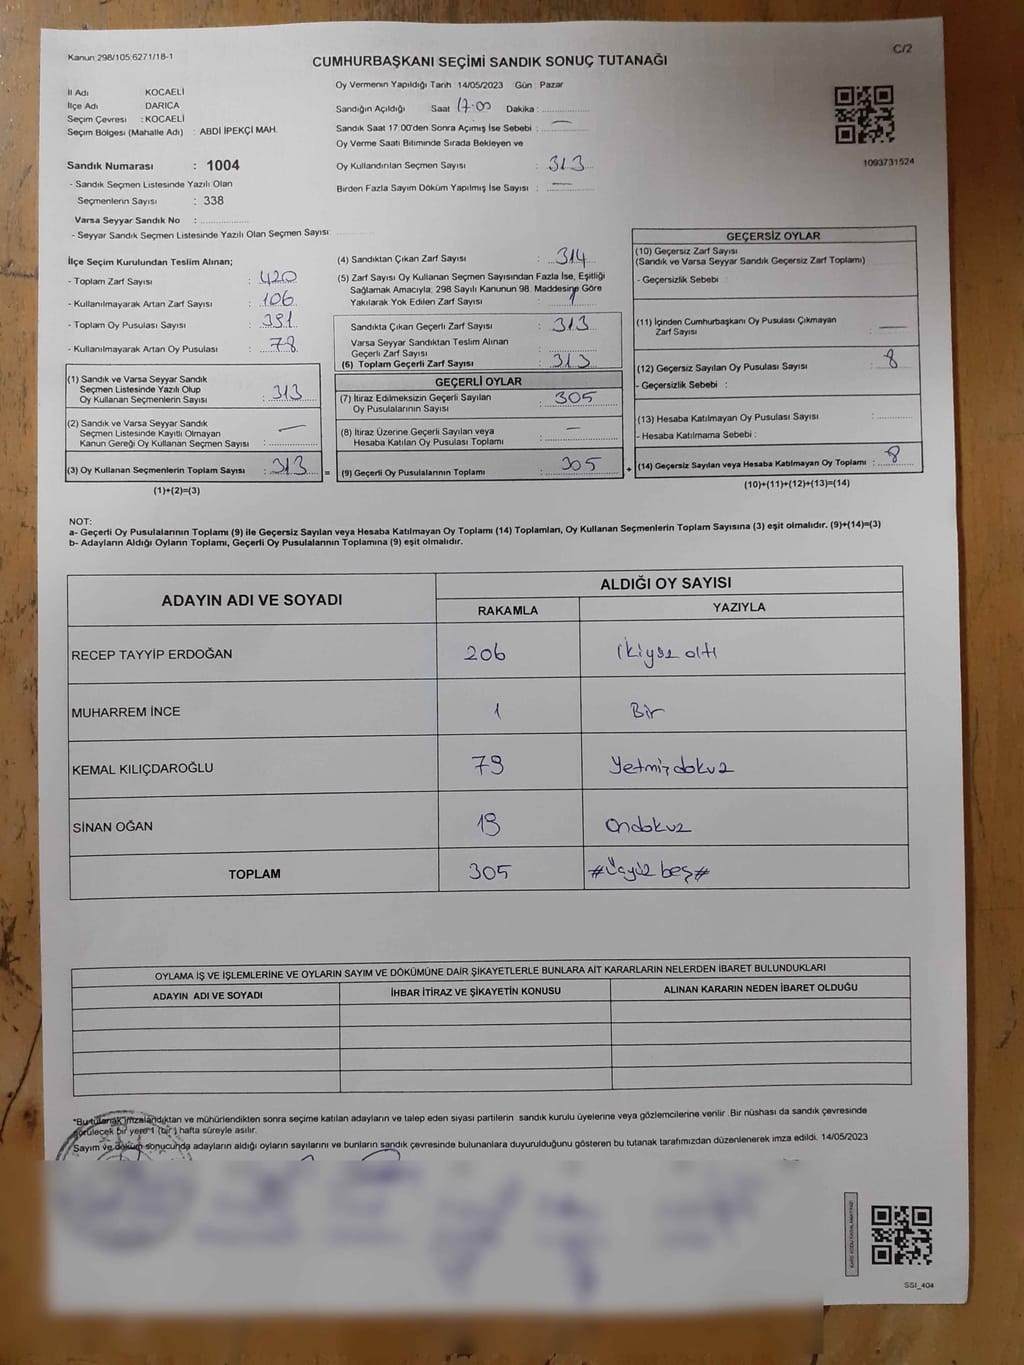 Kanun:298/105;6271/18-1
C/2
CUMHURBAŞKANI SEÇİMİ SANDIK SONUÇ TUTANAĞI
İl Adı KOCAELİ
İlçe Adı DARICA
Seçim Çevresi : KOCAELİ
Seçim Bölgesi (Mahalle Adı) : ABDİ İPEKÇİ MAH.
Sandık Numarası : 1004
- Sandık Seçmen Listesinde Yazılı Olan
Seçmenlerin Sayısı : 338
Varsa Seyyar Sandık No :
- Seyyar Sandık Seçmen Listesinde Yazılı Olan Seçmen Sayısı:
Oy Vermenin Yapıldığı Tarih 14/05/2023 Gün : Pazar
Sandığın Açıldığı Saat 17:00 Dakika :
Sandık Saat 17.00'den Sonra Açımış İse Sebebi : —
Oy Verme Saati Bitiminde Sırada Bekleyen ve
Oy Kullandırılan Seçmen Sayısı : 313
Birden Fazla Sayım Döküm Yapılmış İse Sayısı : —
1093731524
İlçe Seçim Kurulundan Teslim Alınan;
- Toplam Zarf Sayısı : 420
- Kullanılmayarak Artan Zarf Sayısı : 106
- Toplam Oy Pusulası Sayısı : 391
- Kullanılmayarak Artan Oy Pusulası : 78
(1) Sandık ve Varsa Seyyar Sandık
Seçmen Listesinde Yazılı Olup
Oy Kullanan Seçmenlerin Sayısı : 313
(2) Sandık ve Varsa Seyyar Sandık
Seçmen Listesinde Kayıtlı Olmayan
Kanun Gereği Oy Kullanan Seçmen Sayısı : —
(3) Oy Kullanan Seçmenlerin Toplam Sayısı : 313 =
(1)+(2)=(3)
(4) Sandıktan Çıkan Zarf Sayısı : 314
(5) Zarf Sayısı Oy Kullanan Seçmen Sayısından Fazla İse, Eşitliği
Sağlamak Amacıyla; 298 Sayılı Kanunun 98. Maddesine Göre
Yakılarak Yok Edilen Zarf Sayısı : 1
Sandıkta Çıkan Geçerli Zarf Sayısı : 313
Varsa Seyyar Sandıktan Teslim Alınan
Geçerli Zarf Sayısı :
(6) Toplam Geçerli Zarf Sayısı : 313
GEÇERLİ OYLAR
(7) İtiraz Edilmeksizin Geçerli Sayılan
Oy Pusulalarının Sayısı : 305
(8) İtiraz Üzerine Geçerli Sayılan veya
Hesaba Katılan Oy Pusulası Toplamı : —
(9) Geçerli Oy Pusulalarının Toplamı : 305 +
GEÇERSİZ OYLAR
(10) Geçersiz Zarf Sayısı
(Sandık ve Varsa Seyyar Sandık Geçersiz Zarf Toplamı)
- Geçersizlik Sebebi :
(11) İçinden Cumhurbaşkanı Oy Pusulası Çıkmayan
Zarf Sayısı : —
(12) Geçersiz Sayılan Oy Pusulası Sayısı : 8
- Geçersizlik Sebebi :
(13) Hesaba Katılmayan Oy Pusulası Sayısı :
- Hesaba Katılmama Sebebi :
(14) Geçersiz Sayılan veya Hesaba Katılmayan Oy Toplamı : 8
(10)+(11)+(12)+(13)=(14)
NOT:
a- Geçerli Oy Pusulalarının Toplamı (9) ile Geçersiz Sayılan veya Hesaba Katılmayan Oy Toplamı (14) Toplamları, Oy Kullanan Seçmenlerin Toplam Sayısına (3) eşit olmalıdır. (9)+(14)=(3)
b- Adayların Aldığı Oyların Toplamı, Geçerli Oy Pusulalarının Toplamına (9) eşit olmalıdır.
ADAYIN ADI VE SOYADI ALDIĞI OY SAYISI
RAKAMLA YAZIYLA
RECEP TAYYİP ERDOĞAN 206 ikiyüz altı
MUHARREM İNCE 1 Bir
KEMAL KILIÇDAROĞLU 79 Yetmiş dokuz
SİNAN OĞAN 19 Ondokuz
TOPLAM 305 #Üçyüz beş#
OYLAMA İŞ VE İŞLEMLERİNE VE OYLARIN SAYIM VE DÖKÜMÜNE DAİR ŞİKAYETLERLE BUNLARA AİT KARARLARIN NELERDEN İBARET BULUNDUKLARI
ADAYIN ADI VE SOYADI İHBAR İTİRAZ VE ŞİKAYETİN KONUSU ALINAN KARARIN NEDEN İBARET OLDUĞU
*Bu tutanak imzalandıktan ve mühürlendikten sonra seçime katılan adayların ve talep eden siyasi partilerin sandık kurulu üyelerine veya gözlemcilerine verilir. Bir nüshası da sandık çevresinde
görülecek bir yere 1 (bir) hafta süreyle asılır.
Sayım ve döküm sonucunda adayların aldığı oyların sayılarını ve bunların sandık çevresinde bulunanlara duyurulduğunu gösteren bu tutanak tarafımızdan düzenlenerek imza edildi. 14/05/2023
SSI_404